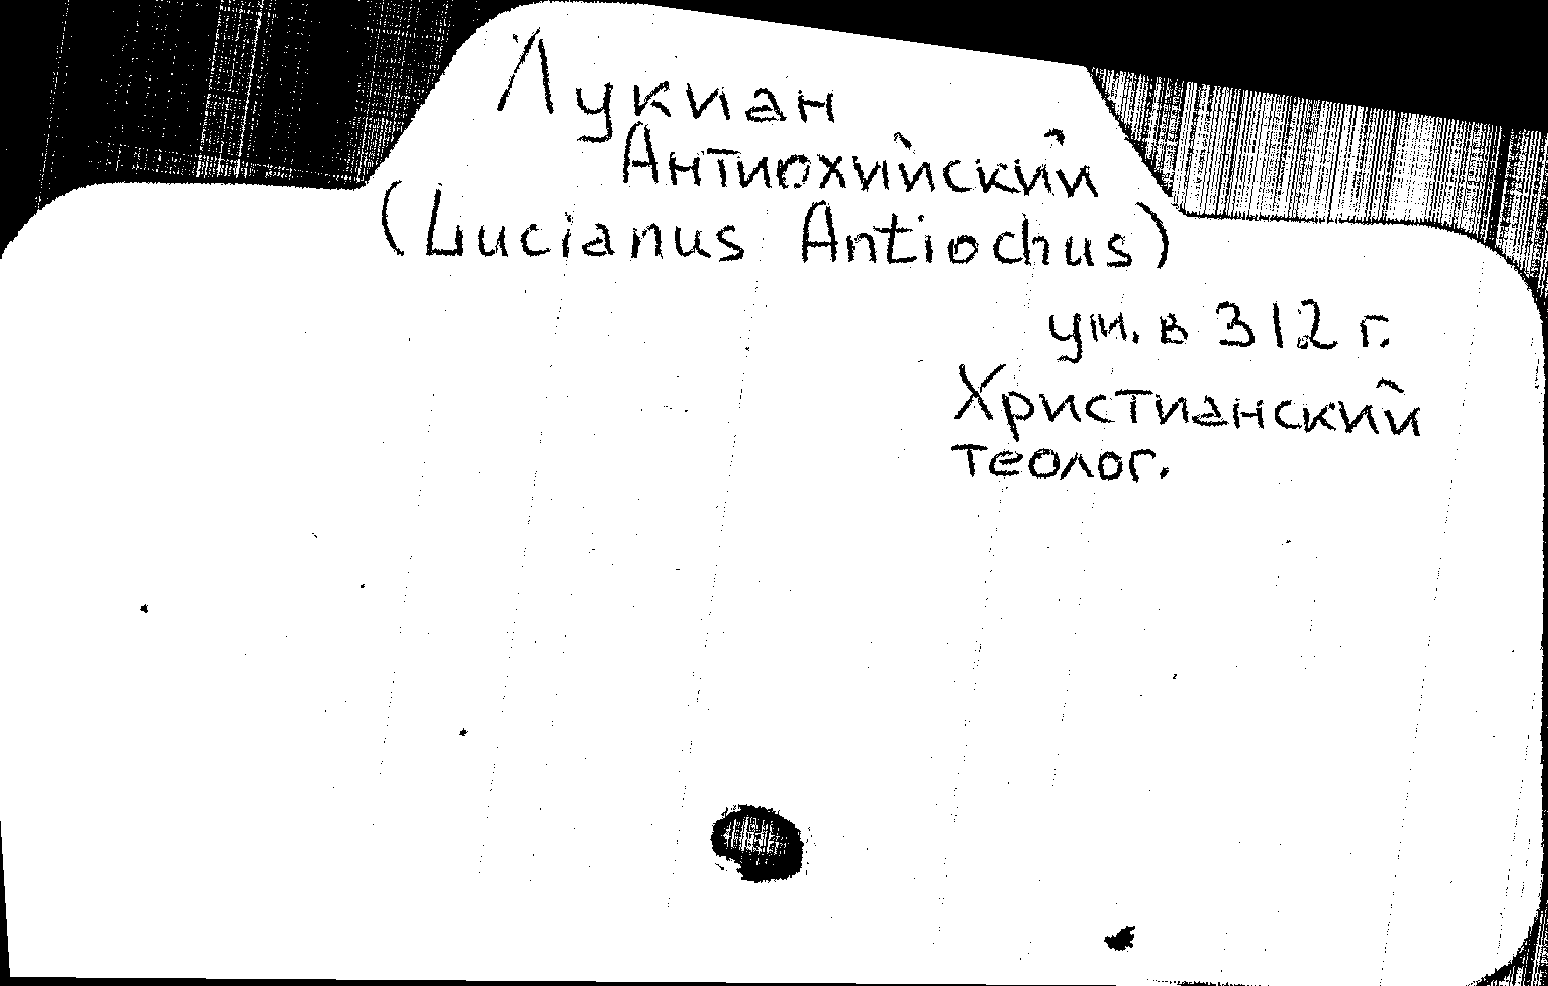 Лукиан
Антиохийский
(Lucianus Antiochus)
ум. в 312 г.
Христианский
теолог.